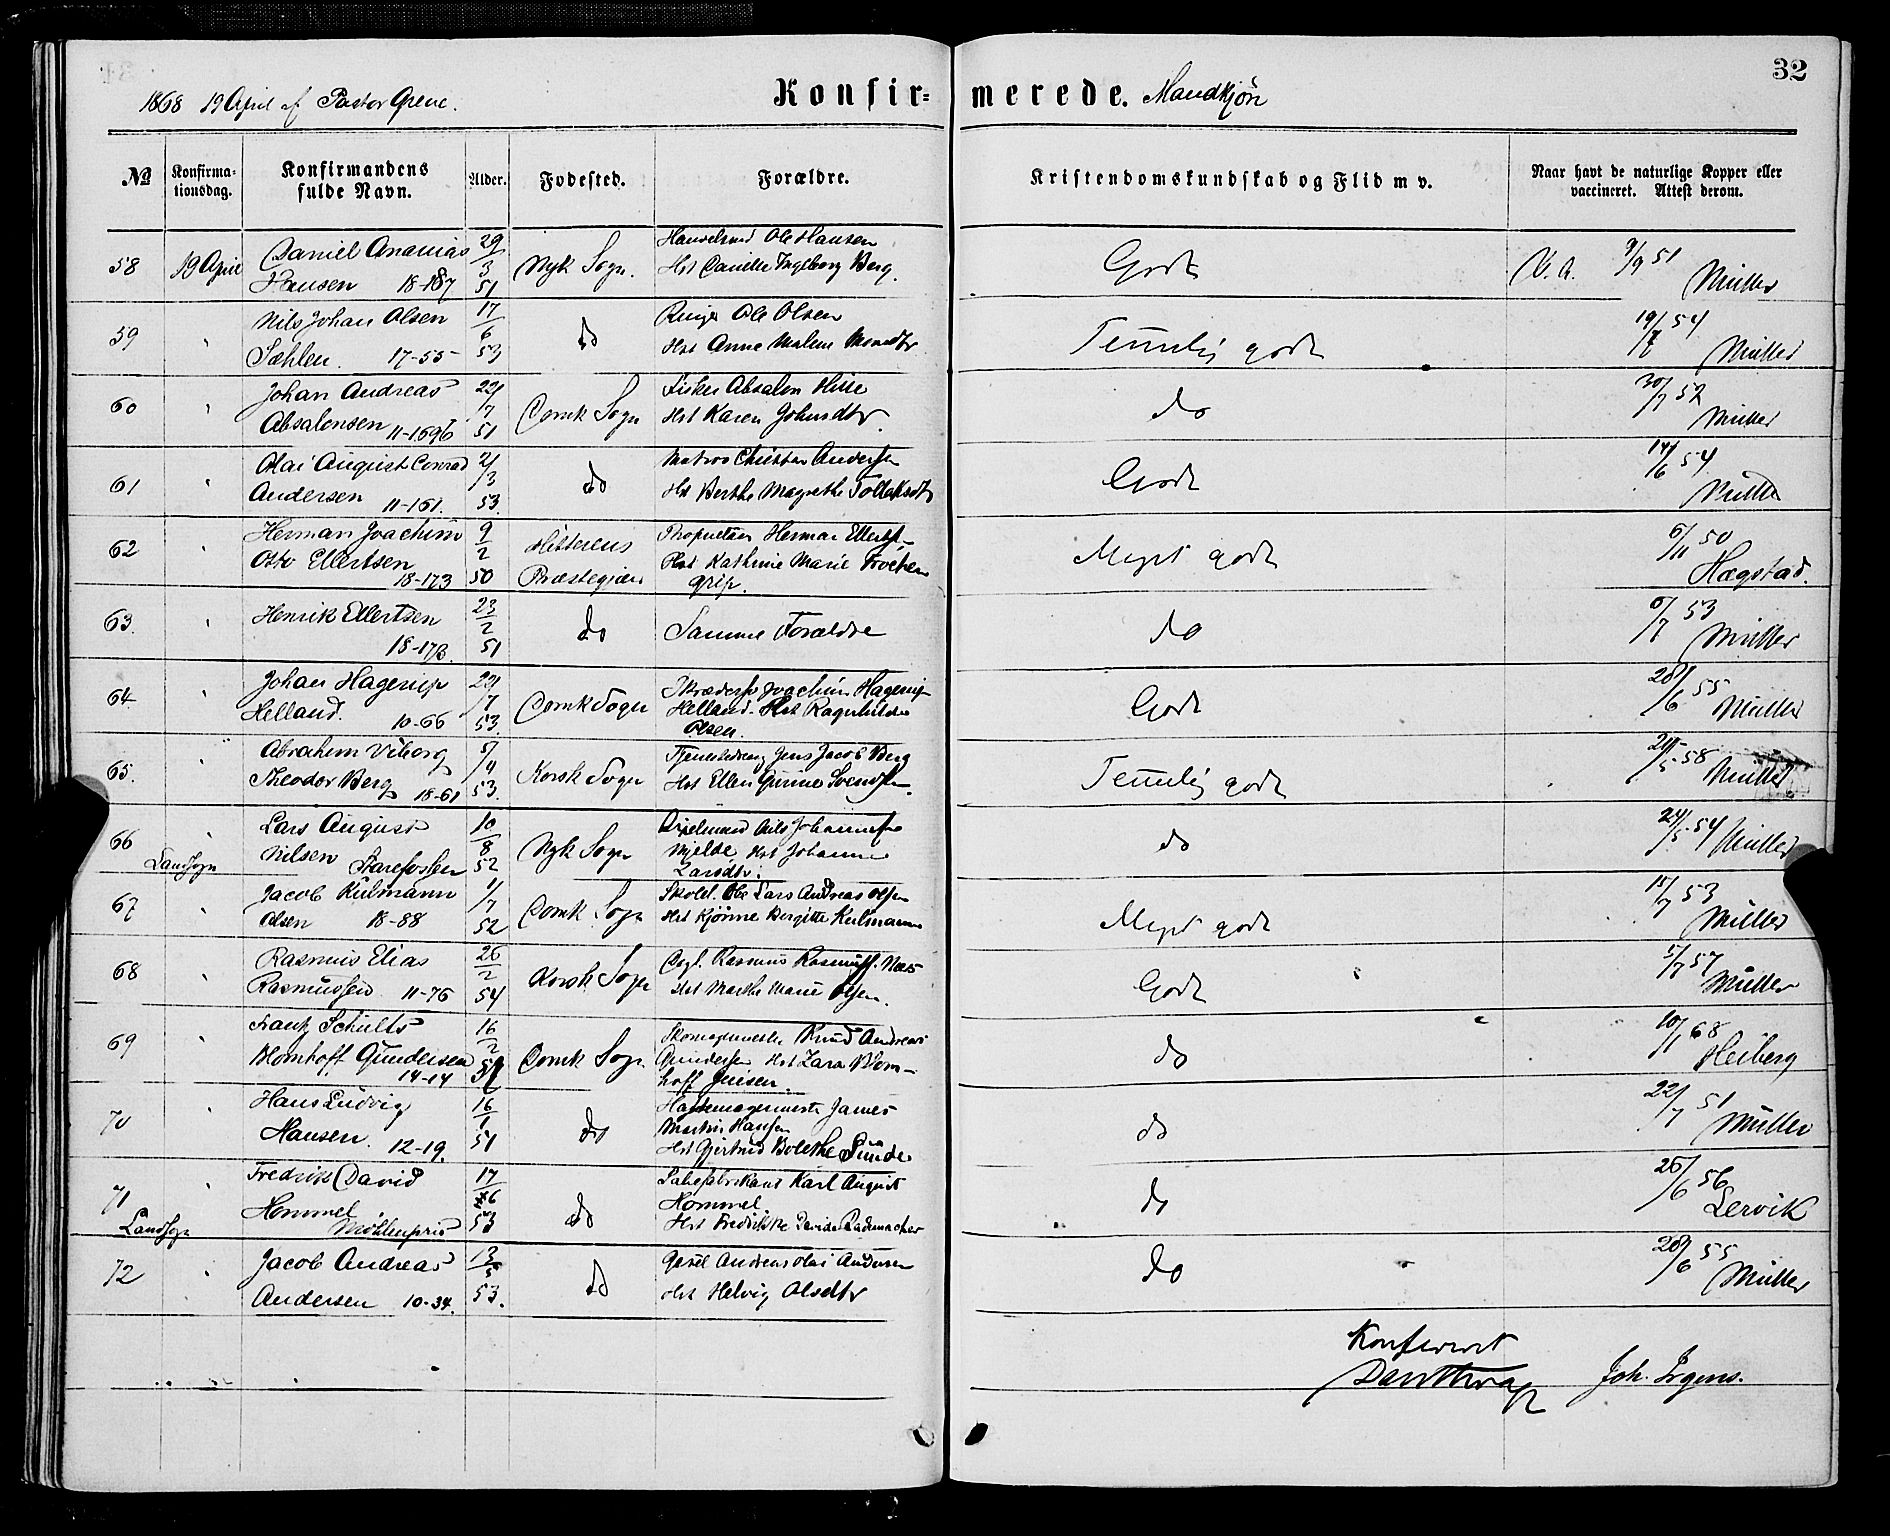 32
1868 19 April af Pastor Grene.
Konfir= merede. Mandkjøn
№
Konfirma-
tionsdag.
Konfirmandens
fulde Navn.
Alder.
Fødested.
Forældre.
Kristendomskundskab og Flid m v.
Naar havt de naturlige Kopper eller
vaccineret. Attest derom.
58 19 April Daniel Ananias Hansen 18-187 29/3 51 Nyk Sogn. Ole Hansen Hst Ingeborg Berg. Godt V. A. 9/9 51 Müller
59 " Nils Johan Olsen Sæhlen. 17-55 17/6 53 do Ole Olsen Hst Anne Malene Monsdtr Temlig godt 19/7 54 Müller
60 " Johan Andreas Absalonsen 11-1696 22/7 51 Domk Sogn Fisker Absalon Hille Hst Karen Johnsdtr. do 30/7 52 Müller
61 " Olai August Conrad Andersen 11-161. 2/3 53. do Matros Christian Andersen Hst Berthe Magrethe Tollaksdtr Godt 14/6 54 Müller
62 " Herman Joachim Otto Ellertsen 18-173 9/2 50 Hitterens Præstegjæld Proprietær Herman Ellertsen Hst Kathrine Marie grip. Meget godt 6/11 50 Hægstad.
63. " Henrik Ellertsen 18-173. 23/2 51 do Samme Forældre do 6/7 53 Müller
64 " Johan Hagerup Helland. 10-66 22/7 53. Domk Sogn Joachim Hagerup Helland. Hst Ragnhilde Olsen. Godt 28/6 55 Müller
65. " Abraham Viborg Theodor Berg 18-61 5/4 53. Korsk Sogn Tjenestedreng Jens Jacob Berg Hst Ellen Gurine Svendsen. Temlig godt 21/5 58 Müller
66 Landsogn " Lars August Nilsen Starefossen 10/8 52 Nyk Sogn Nils Johannesen Mjelde Hst Johanne Larsdtr. do 24/5 54 Müller
67 " Jacob Kulmann Olsen 18-88 1/7 52 Domk Sogn Lars Andreas Olsen Hst Kjønne Bergitte Kulmann Meget godt 15/7 53 Müller
68 " Rasmus Elias Rasmussen 11-76 26/2 54 Korsk Sogn Rasmus Rasmuss. Næs Hst Marthe Marie Olsen. Godt 1/7 57 Müller
69 " Frantz Schults Blomhoff Gundersen 14-14 16/2 Domk Sogn Skomagermester Knud Andreas Gundersen Hst Zara Blom- hoff Jensen. do 10/1 68 Heiberg
70 " Hans Ludvig Hansen. 12-19. 16/1 51 do Hattemagermester James Martin Hansen Hst Gjertrud Bolethe Sunde do 22/7 51 Müller
71 Landsogn " Fredrik David Hommel Möllenpris 17/6 53 do Karl August Hommel. Hst Fredrikke Davida Rademacher do 26/6 56 Lervik
72 " Jacob Andreas Andersen 10-34. 13/5 53. do Andreas Olai Andersen Hst Helvig Olsdtr do 28/6 55 Müller
Konfereret
Joh. Irgens.